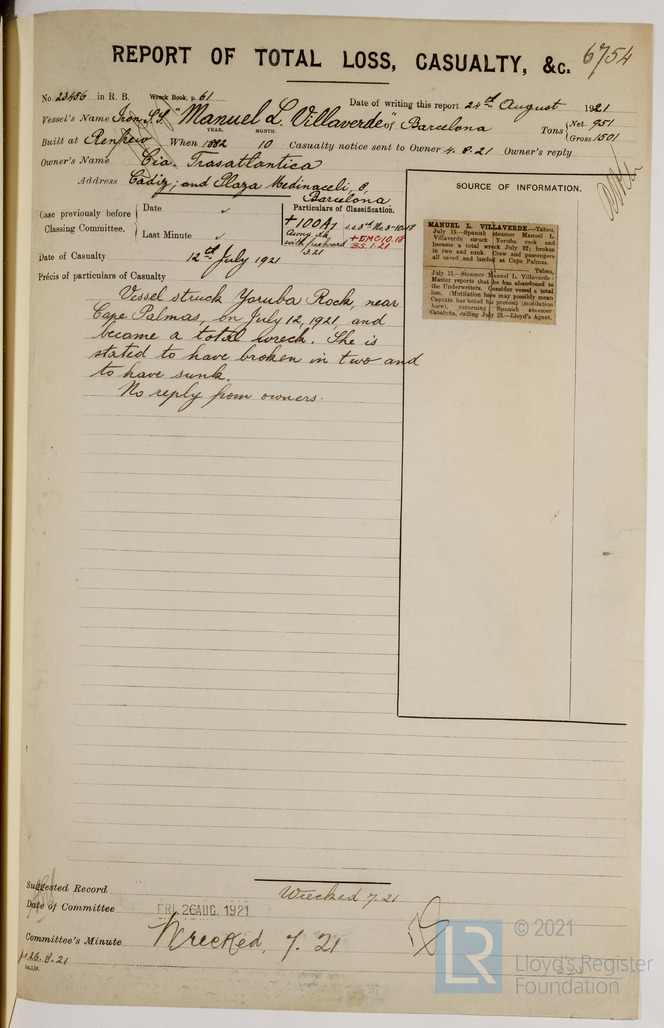 REPORT OF TOTAL LOSS, CASUALTY, &c. 6754
No. 23456 in R. B. Wreck Book, p. 61
Date of writing this report 24th August 1921
Vessel's Name Iron S.S. "Manuel L. Villaverde" of Barcelona Tons { Net 951 Gross 1501
Built at Renfrew When YEAR. 1882 MONTH. 10 Casualty notice sent to Owner 4.8.21 Owner's reply
Owner's Name Cia. Trasatlantica
Address Cadiz; and Plaza Medinaceli, 8, Barcelona.
Case previously before Classing Committee. { Date ✓
Last Minute ✓
Particulars of Classification.
+100A1
with freeboard
3.21
Date of Casualty 12th July 1921
Précis of particulars of Casualty
Vessel struck Yoruba Rock, near
Cape Palmas, on July 12, 1921, and
became a total wreck. She is
stated to have broken in two and
to have sunk.
No reply from owners.
SOURCE OF INFORMATION.
MANUEL L. VILLAVERDE.—Tabou,
July 15.—Spanish steamer Manuel L.
Villaverde struck Yoruba rock and
became a total wreck July 12; broken
in two and sunk. Crew and passengers
all saved and landed at Cape Palmas.
Tabou,
July 15.—Steamer Manuel L. Villaverde:
Master reports that he has abandoned to
the Underwriters. Consider vessel a total
loss. (Mutilation here may possibly mean
Captain has noted his protest) (mutilation
here), returning Spanish steamer
Cataluña, calling July 23.—Lloyd's Agent.
Suggested Record Wrecked 7.21
Date of Committee FRI. 26 AUG. 1921
Committee's Minute Wrecked, 7.21
26.8.21
LR © 2021
Lloyd's Register
Foundation